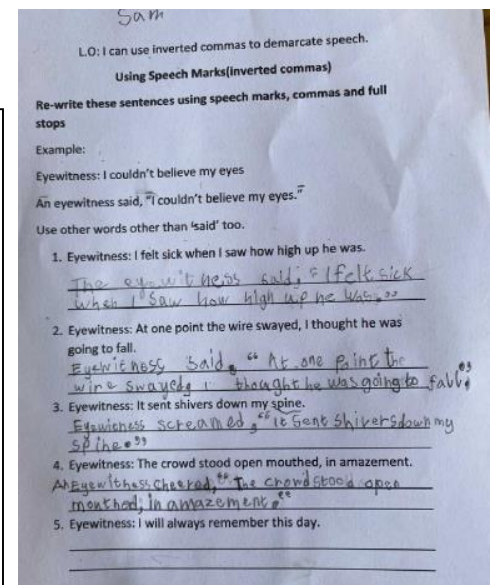 Sam
L.O: I can use inverted commas to demarcate speech.
Using Speech Marks(inverted commas)
Re-write these sentences using speech marks, commas and full
stops
Example:
Eyewitness: I couldn't believe my eyes
An eyewitness said, "I couldn't believe my eyes."
Use other words other than 'said' too.
1. Eyewitness: I felt sick when I saw how high up he was.
The eyewitness said, "I felt sick
when I saw how high up he was."
2. Eyewitness: At one point the wire swayed, I thought he was
going to fall.
Eyewitness said, "At one point the
wire swayed, I thought he was going to fall."
3. Eyewitness: It sent shivers down my spine.
Eyewitness screamed, "it sent shivers down my
spine."
4. Eyewitness: The crowd stood open mouthed, in amazement.
An Eyewitness cheered, "The crowd stood open
mouthed, in amazement."
5. Eyewitness: I will always remember this day.